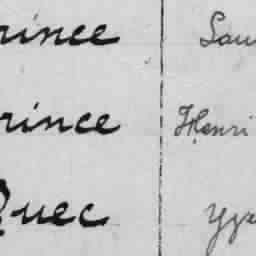 rince Lou
rince Henri
Quec Yv